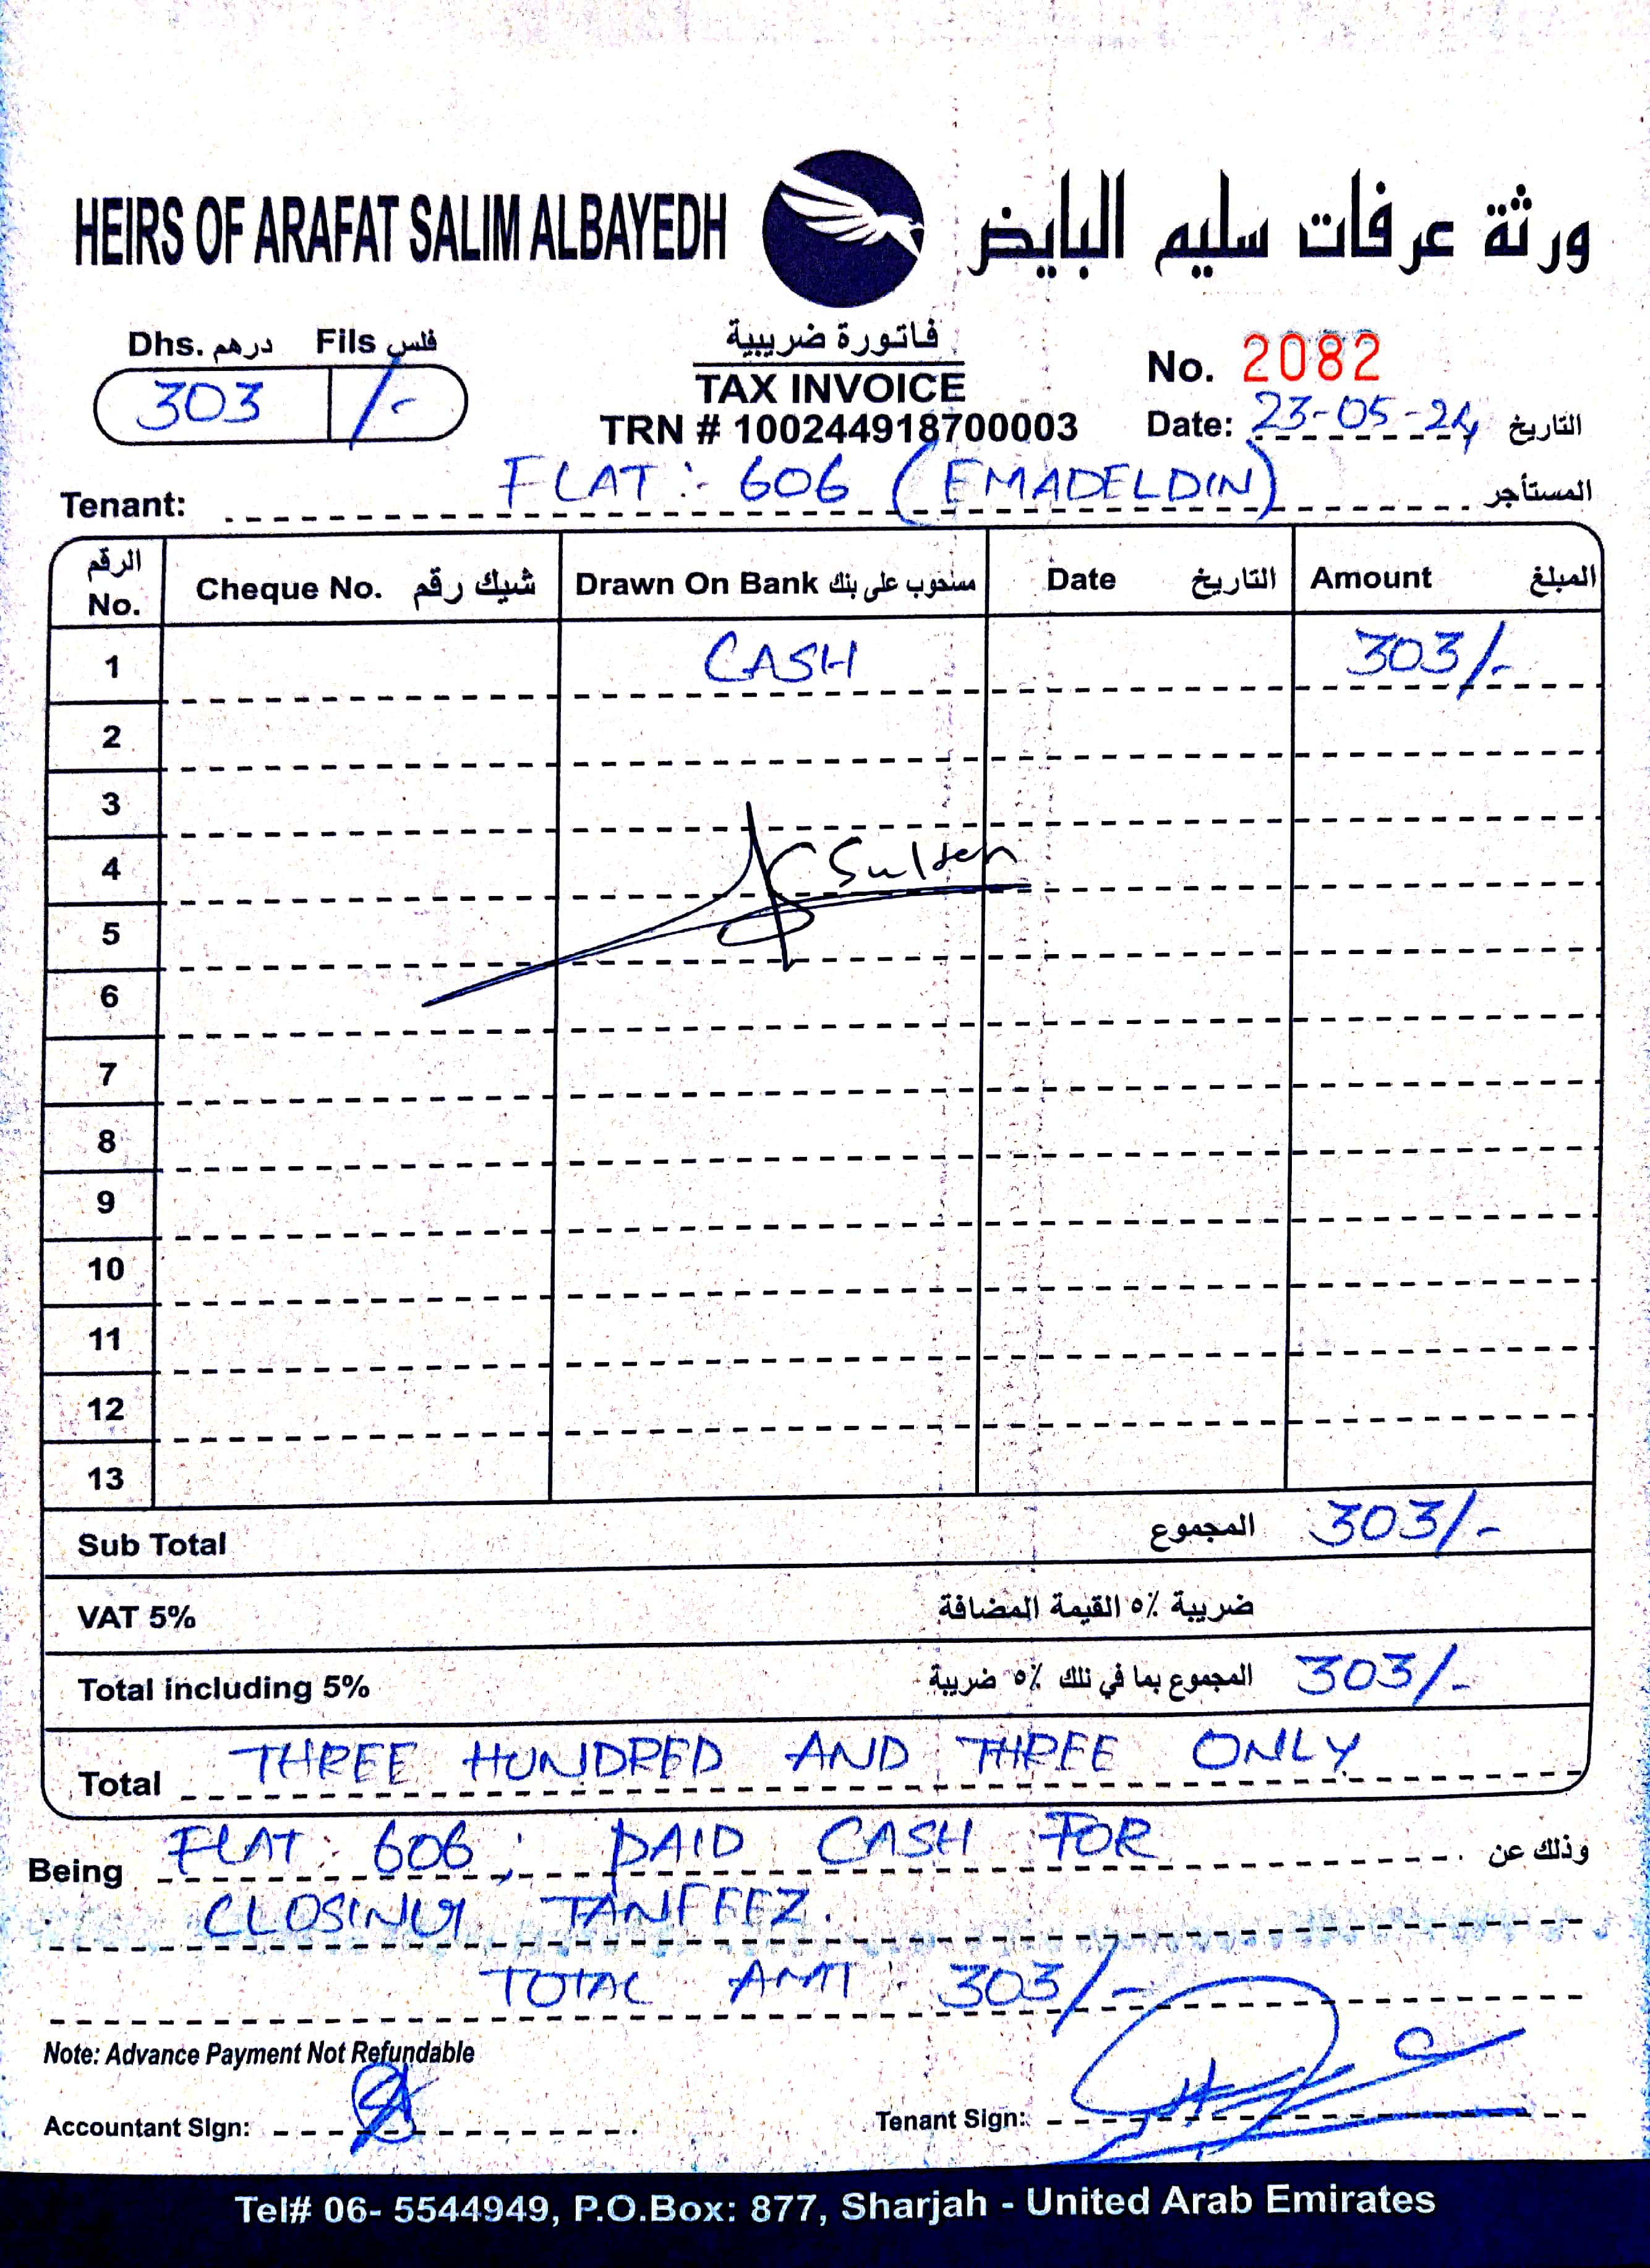 HEIRS OF ARAFAT SALIM ALBAYEDH ورثة عرفات سليم البايض
Dhs. درهم Fils فلس
303 /-
فاتورة ضريبية
TAX INVOICE
TRN # 100244918700003
No. 2082
Date: 23-05-24 التاريخ
Tenant: FLAT :- 606 (EMADELDIN) المستأجر
الرقم No. Cheque No. شيك رقم Drawn On Bank مسحوب على بنك Date التاريخ Amount المبلغ
1 CASH 303/-
2
3
4 Sultan
5
6
7
8
9
10
11
12
13
Sub Total المجموع 303/-
VAT 5% ضريبة ٥٪ القيمة المضافة
Total including 5% المجموع بما في ذلك ٥٪ ضريبة 303/-
Total THREE HUNDRED AND THREE ONLY
Being FLAT: 606; PAID CASH FOR وذلك عن
CLOSING TANFEEZ.
TOTAL AMT 303/-
Note: Advance Payment Not Refundable
Accountant Sign: Tenant Sign:
Tel# 06- 5544949, P.O.Box: 877, Sharjah - United Arab Emirates